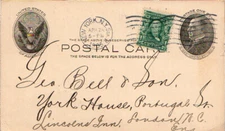 POSTAL CARD
THE SPACE BELOW IS FOR THE ADDRESS ONLY.
Geo. Bell & Son.
York House, Portugal St.
Lincolns Inn, London W.C.
Eng